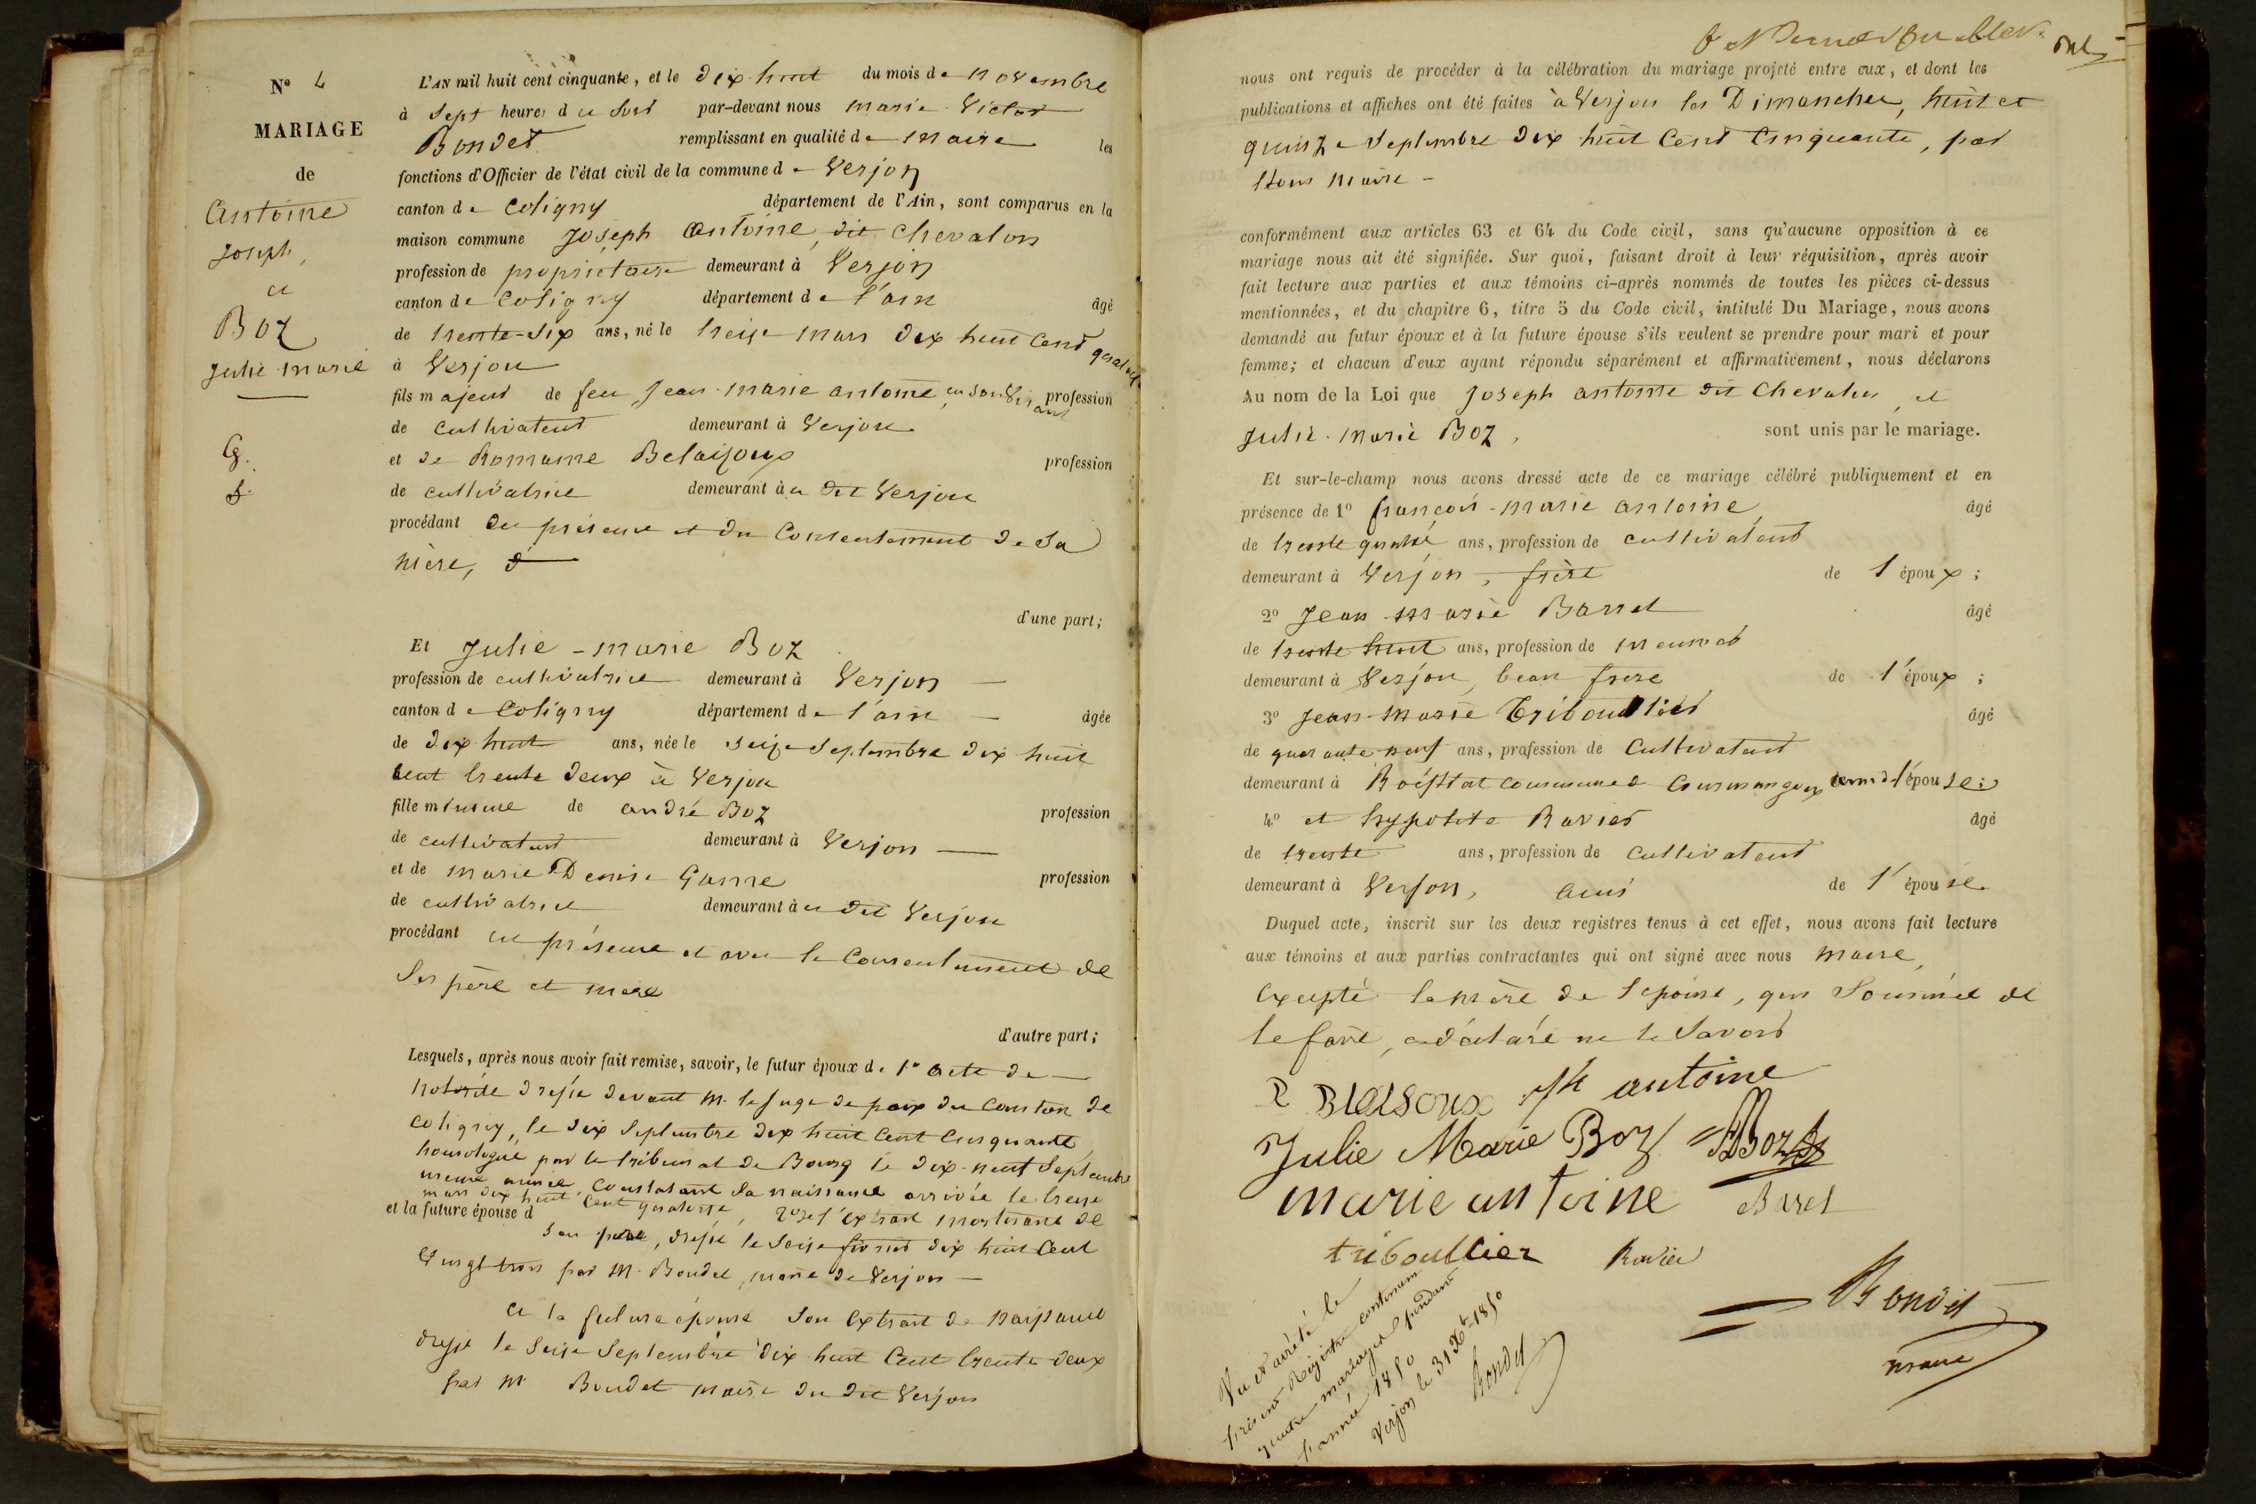 N° 4
MARIAGE
de
Antoine
Joseph,
et
Boz
Julie-marie
L'AN mil huit cent cinquante, et le dix-huit du mois de novembre
à sept heures du soir par-devant nous marie Victor
Bondet remplissant en qualité de maire les
fonctions d'Officier de l'état civil de la commune de Verjon
canton de Coligny département de l'Ain, sont comparus en la
maison commune Joseph Antoine, dit Chevalon
profession de propriétaire demeurant à Verjon
canton de Coligny département de l'ain âgé
de trente-six ans, né le treize mars dix huit cent quatorze
à Verjon
fils majeur de feu Jean-marie antoine, en son vivant profession
de cultivateur demeurant à Verjon
et de Romaine Belaisoux profession
de cultivatrice demeurant au dit Verjon
procédant en présence et du Consentement de Sa
mère,
d'une part;
Et Julie-marie Boz
profession de cultivatrice demeurant à Verjon
canton de Coligny département de l'ain âgée
de dix huit ans, née le seize septembre dix huit
cent trente deux à Verjon
fille mineure de andré Boz profession
de cultivateur demeurant à Verjon
et de marie Denise Ganne profession
de cultivatrice demeurant au dit Verjon
procédant en présence et avec le Consentement de
Ses père et mère
d'autre part;
Lesquels, après nous avoir fait remise, savoir, le futur époux d. 1° acte de
notoriété dressé devant M. le Juge de paix du Canton de
Coligny, le dix Septembre dix huit cent cinquante
homologué par le tribunal de Bourg le dix-neuf Septembre
même année, Constatant sa naissance arrivée le treize
mars dix huit Cent quatorze, 2° de l'extrait mortuaire de
et la future épouse d
son père, dressé le seize février dix huit Cent
Vingt trois par M. Bondet, maire de Verjon
et la future épouse son Extrait de naissance
dressé le Seize Septembre dix huit Cent trente deux
par M Bondet maire du dit Verjon
nous ont requis de procéder à la célébration du mariage projeté entre eux, et dont les
publications et affiches ont été faites à Verjon les Dimanches, huit et
quinze Septembre dix huit Cent Cinquante, par
Nous maire
conformément aux articles 63 et 64 du Code civil, sans qu'aucune opposition à ce
mariage nous ait été signifiée. Sur quoi, faisant droit à leur réquisition, après avoir
fait lecture aux parties et aux témoins ci-après nommés de toutes les pièces ci-dessus
mentionnées, et du chapitre 6, titre 5 du Code civil, intitulé Du Mariage, nous avons
demandé au futur époux et à la future épouse s'ils veulent se prendre pour mari et pour
femme; et chacun d'eux ayant répondu séparément et affirmativement, nous déclarons
Au nom de la Loi que Joseph antoine dit Chevalon, et
Julie-Marie Boz, sont unis par le mariage.
Et sur-le-champ nous avons dressé acte de ce mariage célébré publiquement et en
présence de 1° françois-marie antoine âgé
de trente quatre ans, profession de cultivateur
demeurant à Verjon, frère de l'époux;
2° Jean-marie Barret âgé
de trente huit ans, profession de meunier
demeurant à Verjon, beau frère de l'époux;
3° Jean-marie Triboullier âgé
de quarante neuf ans, profession de Cultivateur
demeurant à commune de Courmangoux ami de l'épouse;
4° et hypolite Ravier âgé
de trente ans, profession de cultivateur
demeurant à Verjon, ami de l'épouse.
Duquel acte, inscrit sur les deux registres tenus à cet effet, nous avons fait lecture
aux témoins et aux parties contractantes qui ont signé avec nous maire,
Excepté la mère de l'épouse, qui Sommée de
le faire, a déclaré ne le Savoir
R Blaisoux Jh antoine
Julie Marie Boz Boz
marie antoine Baret
triboullier Ravier
Bondet
maire
Vu et arrêté le
présent Registre contenant
quatre mariages pendant
l'année 1850
Verjon le 31 Xbre 1850
Bondet